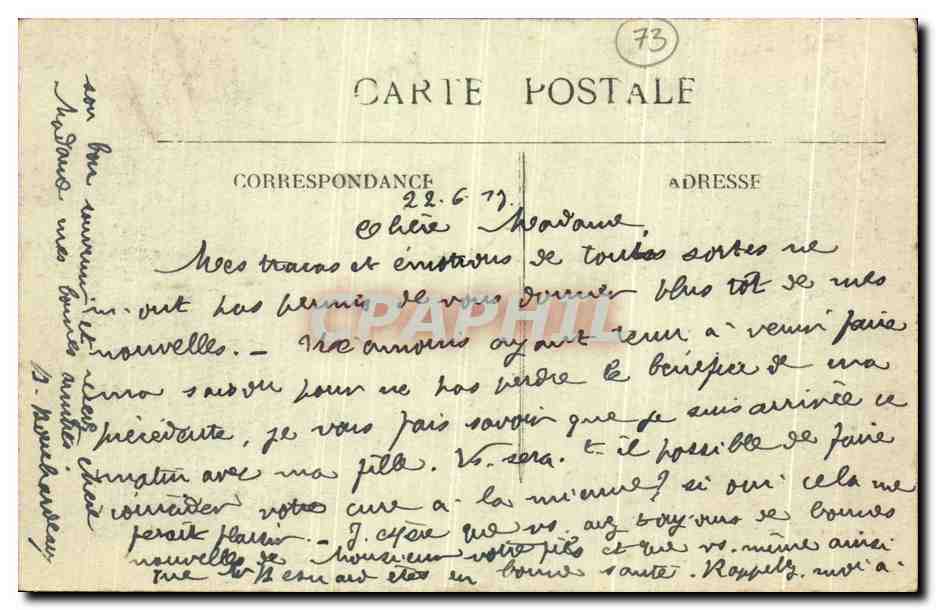 73
CARTE POSTALE
CORRESPONDANCE
ADRESSE
22.6.17.
Chère Madame,
Mes tracas et émotions de toutes sortes ne
m'ont pas permis de vous donner plus tôt de mes
nouvelles. — Néanmoins ayant tenu à venir faire
ma saison pour ne pas perdre le bénéfice de ma
précédente, je vous fais savoir que je suis arrivée ce
matin avec ma fille. Vs. sera-t-il possible de faire
coïncider votre cure à la mienne? si oui cela me
ferait plaisir. — J'espère que vs. avez toujours de bonnes
nouvelles de Monsieur votre fils et que vs. même ainsi
que Besnard êtes en bonne santé. Rappelez-moi à
son bon souvenir et recevez chère
Madame mes bonnes amitiés
CPAPHIL